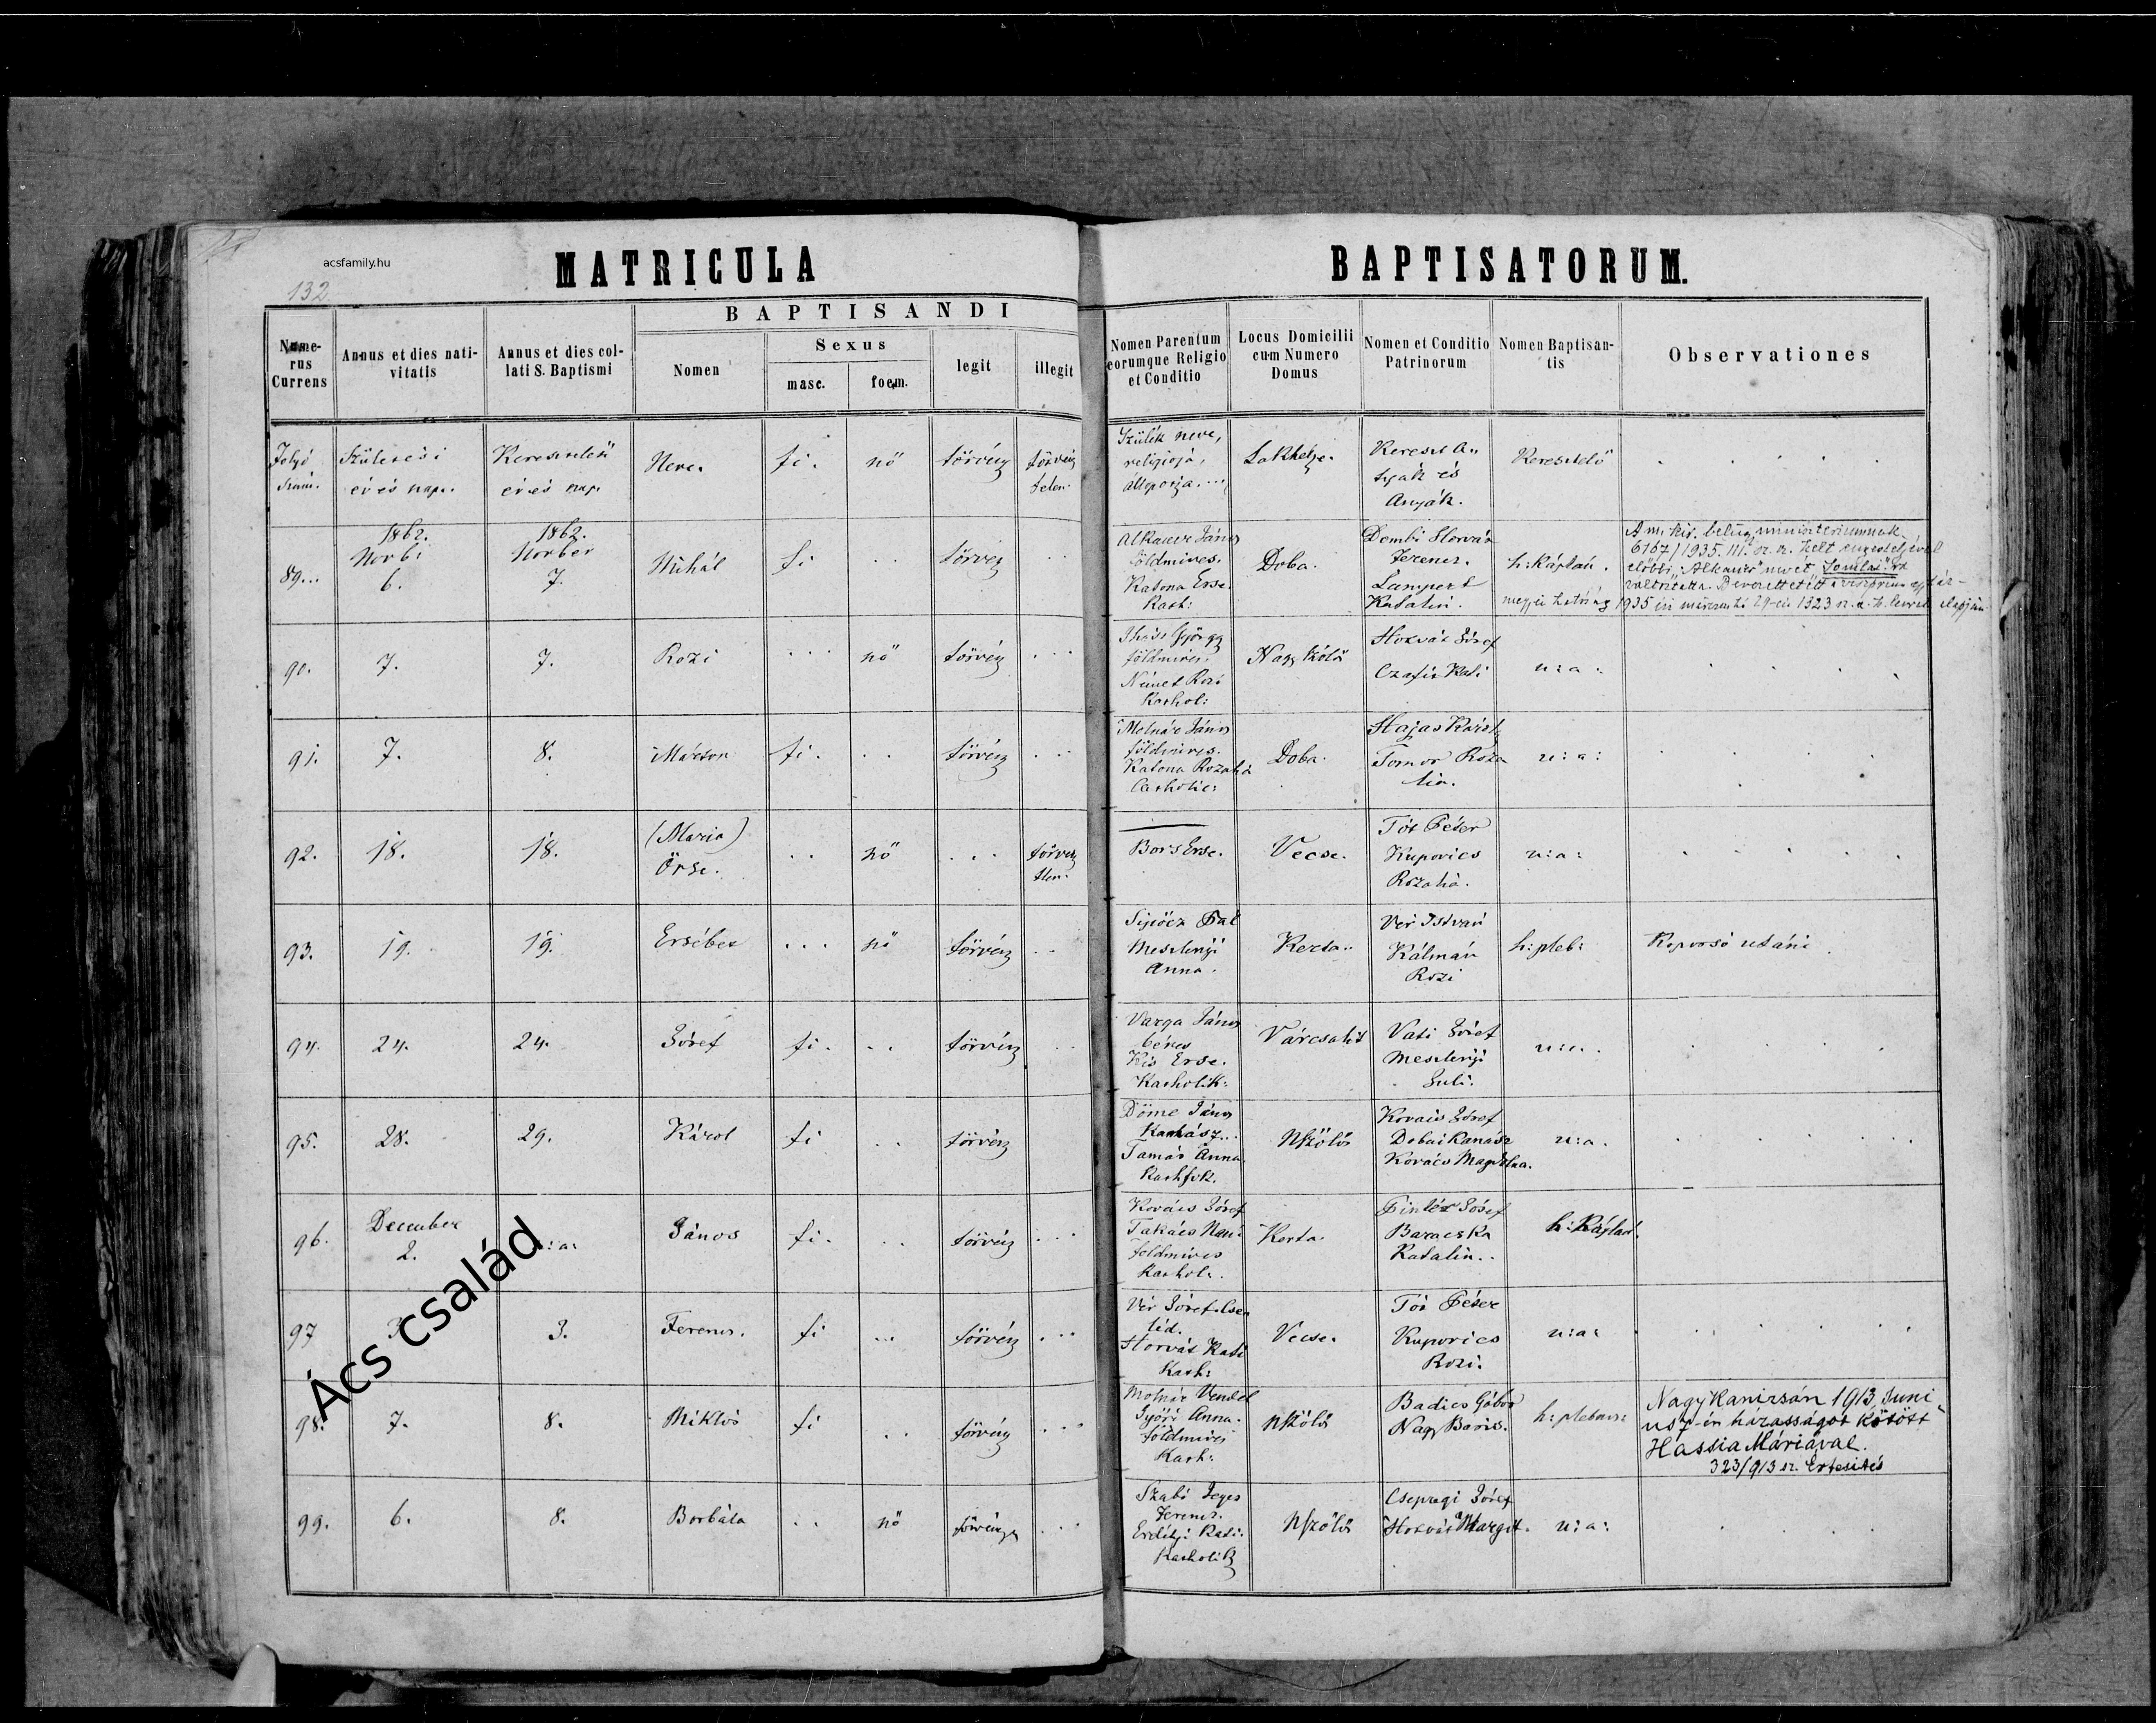 acsfamily.hu
132
MATRICULA BAPTISATORUM.
BAPTISANDI
Nume-
rus
Currens
Annus et dies nati-
vitatis
Annus et dies col-
lati S. Baptismi
Nomen
Sexus
masc.
foem.
legit
illegit
Nomen Parentum
eorumque Religio
et Conditio
Locus Domicilii
cum Numero
Domus
Nomen et Conditio
Patrinorum
Nomen Baptisan-
tis
Observationes
Folyó
szám.
Születési
év és nap.
Keresztelési
év és nap.
Neve.
fi.
nő
törvény
törvény
telen.
Szülék neve,
religiója,
állapotja.
Lakhelye.
Kereszt A
tyák és
Anyák.
Keresztelő
89.
1862.
Novbr
6.
1862.
Novber
7.
Mihál
fi
törvény
János
földmives.
Katona Erse.
Kath:
Doba.
Dembi Horvát
Ferencz.
Lampert
Katalin.
h: Káplán.
A m. kir. belügyminiszteriumnak
6167/1935. III. sz. a. kelt engedelyével
előbbi "Alkauer" nevét
1935 évi 29-én 1323 sz. a. alapján
90.
7.
7.
Rozi
nő
törvény
György
földmives.
Német Rozi
Kathol:
Nagy Szőlős
Horvát Józef
Czafit Kati
u: a:
91.
7.
8.
Márton
fi.
törvény
Molnár János
földmives.
Katona Rozalia
Catholic:
Doba.
Hajas
Tomor Roza
lia.
u: a:
92.
18.
18.
(Maria)
Örse.
nő
törvény
telen.
Bors Erse.
Vecse.
Tót Péter
Kupovics
Rozalia.
u: a:
93.
19.
19.
Ersébet
nő
törvény
Sipőcz Pál
Mesterhji
Anna.
Kerta.
Vér István
Kálmán
Rozi
h: pleb:
Koporsó utáni
94.
24.
24.
Józef
fi.
törvény
Varga János
béres
Kis Erse.
Katholik:
Várcsalit
Vati Józef
Mesterhji
Juli.
u: a.
95.
28.
29.
Károl
fi
törvény
Döme János
Kanász.
Tamás Anna.
Kathol.
NSzőlős
Kovács Józef
Dobai Kanász
Kovács Magdolna.
u: a.
96.
December
2.
u: a:
János
fi.
törvény
Kovács Józef
Takács Nani
földmives
Kathol:
Kerta
Pintér Józef
Baracska
Katalin.
h: Káplán.
97
3.
3.
Ferencz.
fi
törvény
Vér Józef Cse
léd.
Horvát Kati
Kath:
Vecse.
Tót Péter
Kupovics
Rozi.
u: a:
98.
7.
8.
Miklós
fi
törvény
Molnár Vendel
Győri Anna.
földmives
Kath:
NSzőlős
Badics Gábor
Nagy Baris.
h: plebnus:
Nagykanizsán 1913 Juni-
us 7-én házasságot kötött
Hassia Máriával.
323/913 sz. értesítés
99.
6.
8.
Borbála
nő
törvény
Szabó
Ferencz.
Erdélyi Kati.
Katholik
NSzőlős
Csepregi Józef
Horvát Margit.
u: a:
Ács család